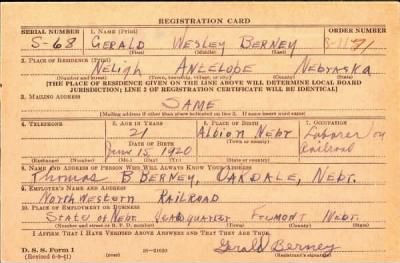 REGISTRATION CARD
SERIAL NUMBER 1. NAME (Print) ORDER NUMBER
S-68 GERALD WESLEY BERNEY
(First) (Middle) (Last)
2. PLACE OF RESIDENCE (Print)
Neligh ANTELOPE NEBRASKA
(Number and street) (Town, township, village, or city) (County) (State)
[THE PLACE OF RESIDENCE GIVEN ON THE LINE ABOVE WILL DETERMINE LOCAL BOARD
JURISDICTION; LINE 2 OF REGISTRATION CERTIFICATE WILL BE IDENTICAL]
3. MAILING ADDRESS
SAME
[Mailing address if other than place indicated on line 2. If same insert word same]
4. TELEPHONE 5. AGE IN YEARS 6. PLACE OF BIRTH 7. OCCUPATION
21 Albion Nebr Laborer on
DATE OF BIRTH (Town or county) Railroad
June 15, 1920
(Exchange) (Number) (Mo.) (Day) (Yr.) (State or country)
8. NAME AND ADDRESS OF PERSON WHO WILL ALWAYS KNOW YOUR ADDRESS
Thomas B BERNEY, OAKDALE, Nebr.
9. EMPLOYER'S NAME AND ADDRESS
NorthWestern RAILROAD
10. PLACE OF EMPLOYMENT OR BUSINESS
State of Nebr Headquarter Fremont Nebr.
(Number and street or R. F. D. number) (Town) (County) (State)
I AFFIRM THAT I HAVE VERIFIED ABOVE ANSWERS AND THAT THEY ARE TRUE.
D. S. S. Form 1 Gerald Berney
(Revised 6-9-41) (Registrant's signature)